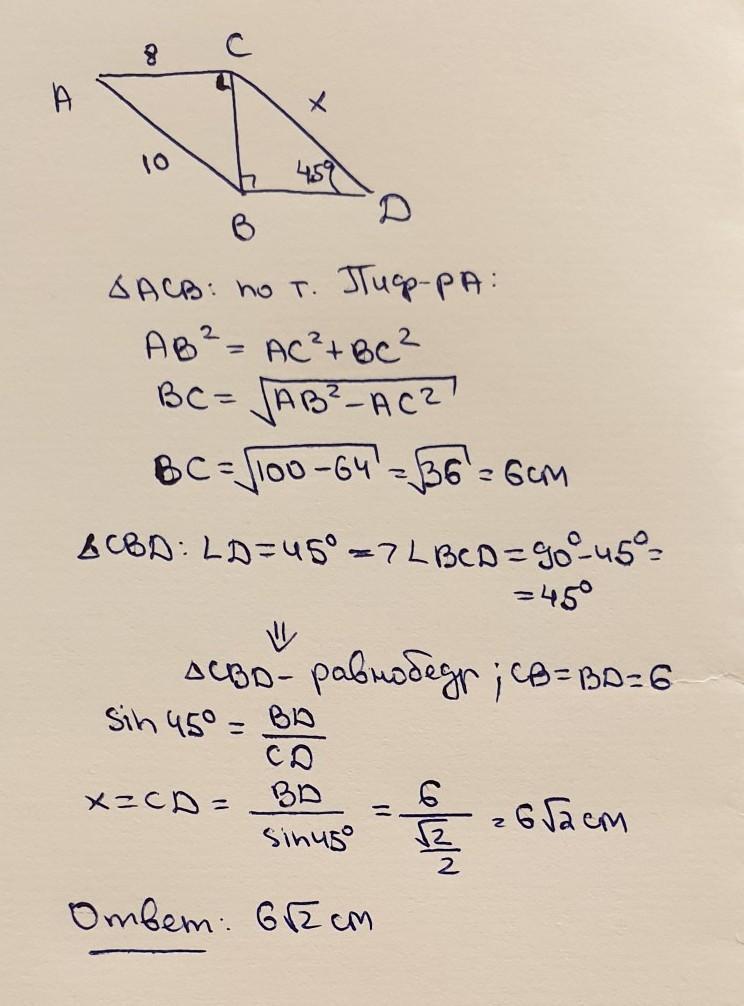 8
C
A
x
10
45°
B
D
ΔACB: по т. Пиф-рА:
AB² = AC² + BC²
BC = √AB² − AC²
BC = √100 − 64 = √36 = 6 см
ΔCBD: ∠D = 45° => ∠BCD = 90° − 45° =
= 45°
⇓
ΔCBD − равнобедр ; CB = BD = 6
sin 45° = BD/CD
x = CD = BD/sin45° = 6/(√2/2) = 6√2 см
Ответ: 6√2 см